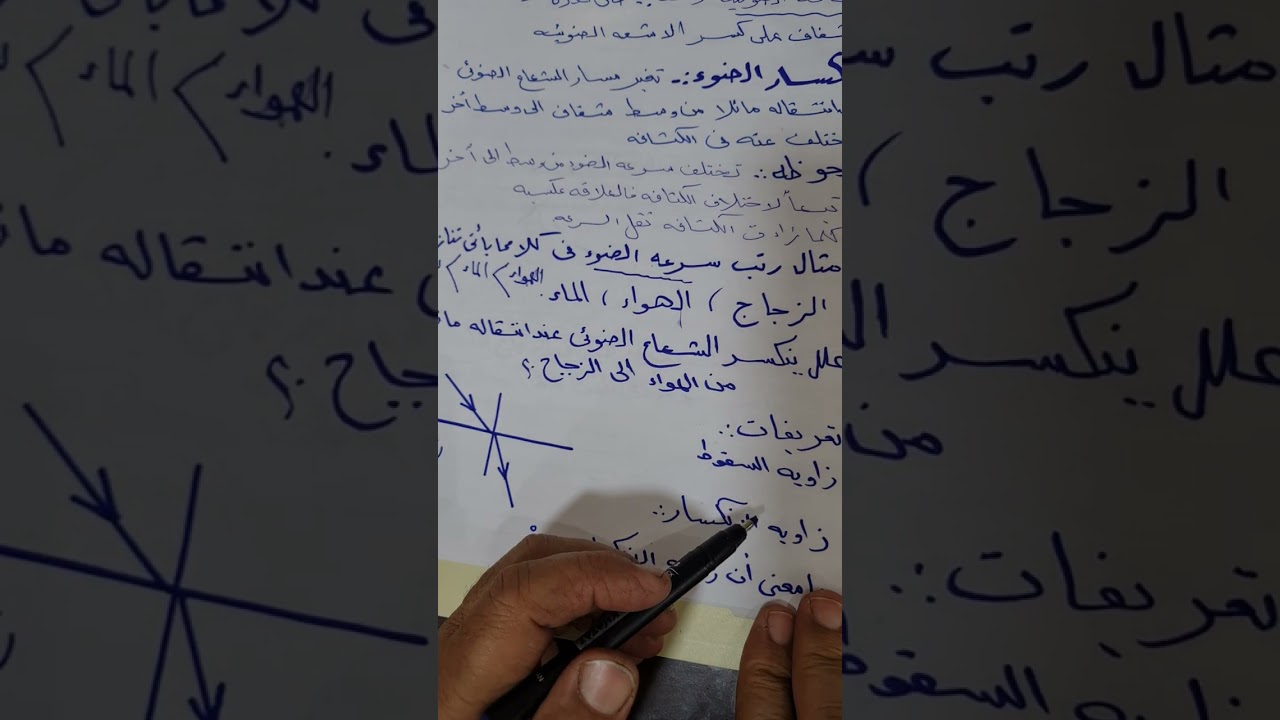 شفاف على كسر الاشعه الضوئيه
كسار الضوء :- تغير مسار الشعاع الضوئى
انتقاله مائلا من وسط شفاف الى وسط أخر
ختلف عنه فى الكثافه
حوظه :. تختلف سرعه الضوء من وسط الى أخر
تبعاً لاختلاف الكثافه فالعلاقه عكسيه
كلما زادت الكثافه تقل السرعه
مثال رتب سرعه الضوء فى كلا مما يأتى
الزجاج ) الهواء ، الماء . الهواء > الماء >
علل ينكسر الشعاع الضوئى عند انتقاله
من الهواء الى الزجاج ؟
تعريفات :.
زاويه السقوط
زاويه الانكسار :.
معنى أن